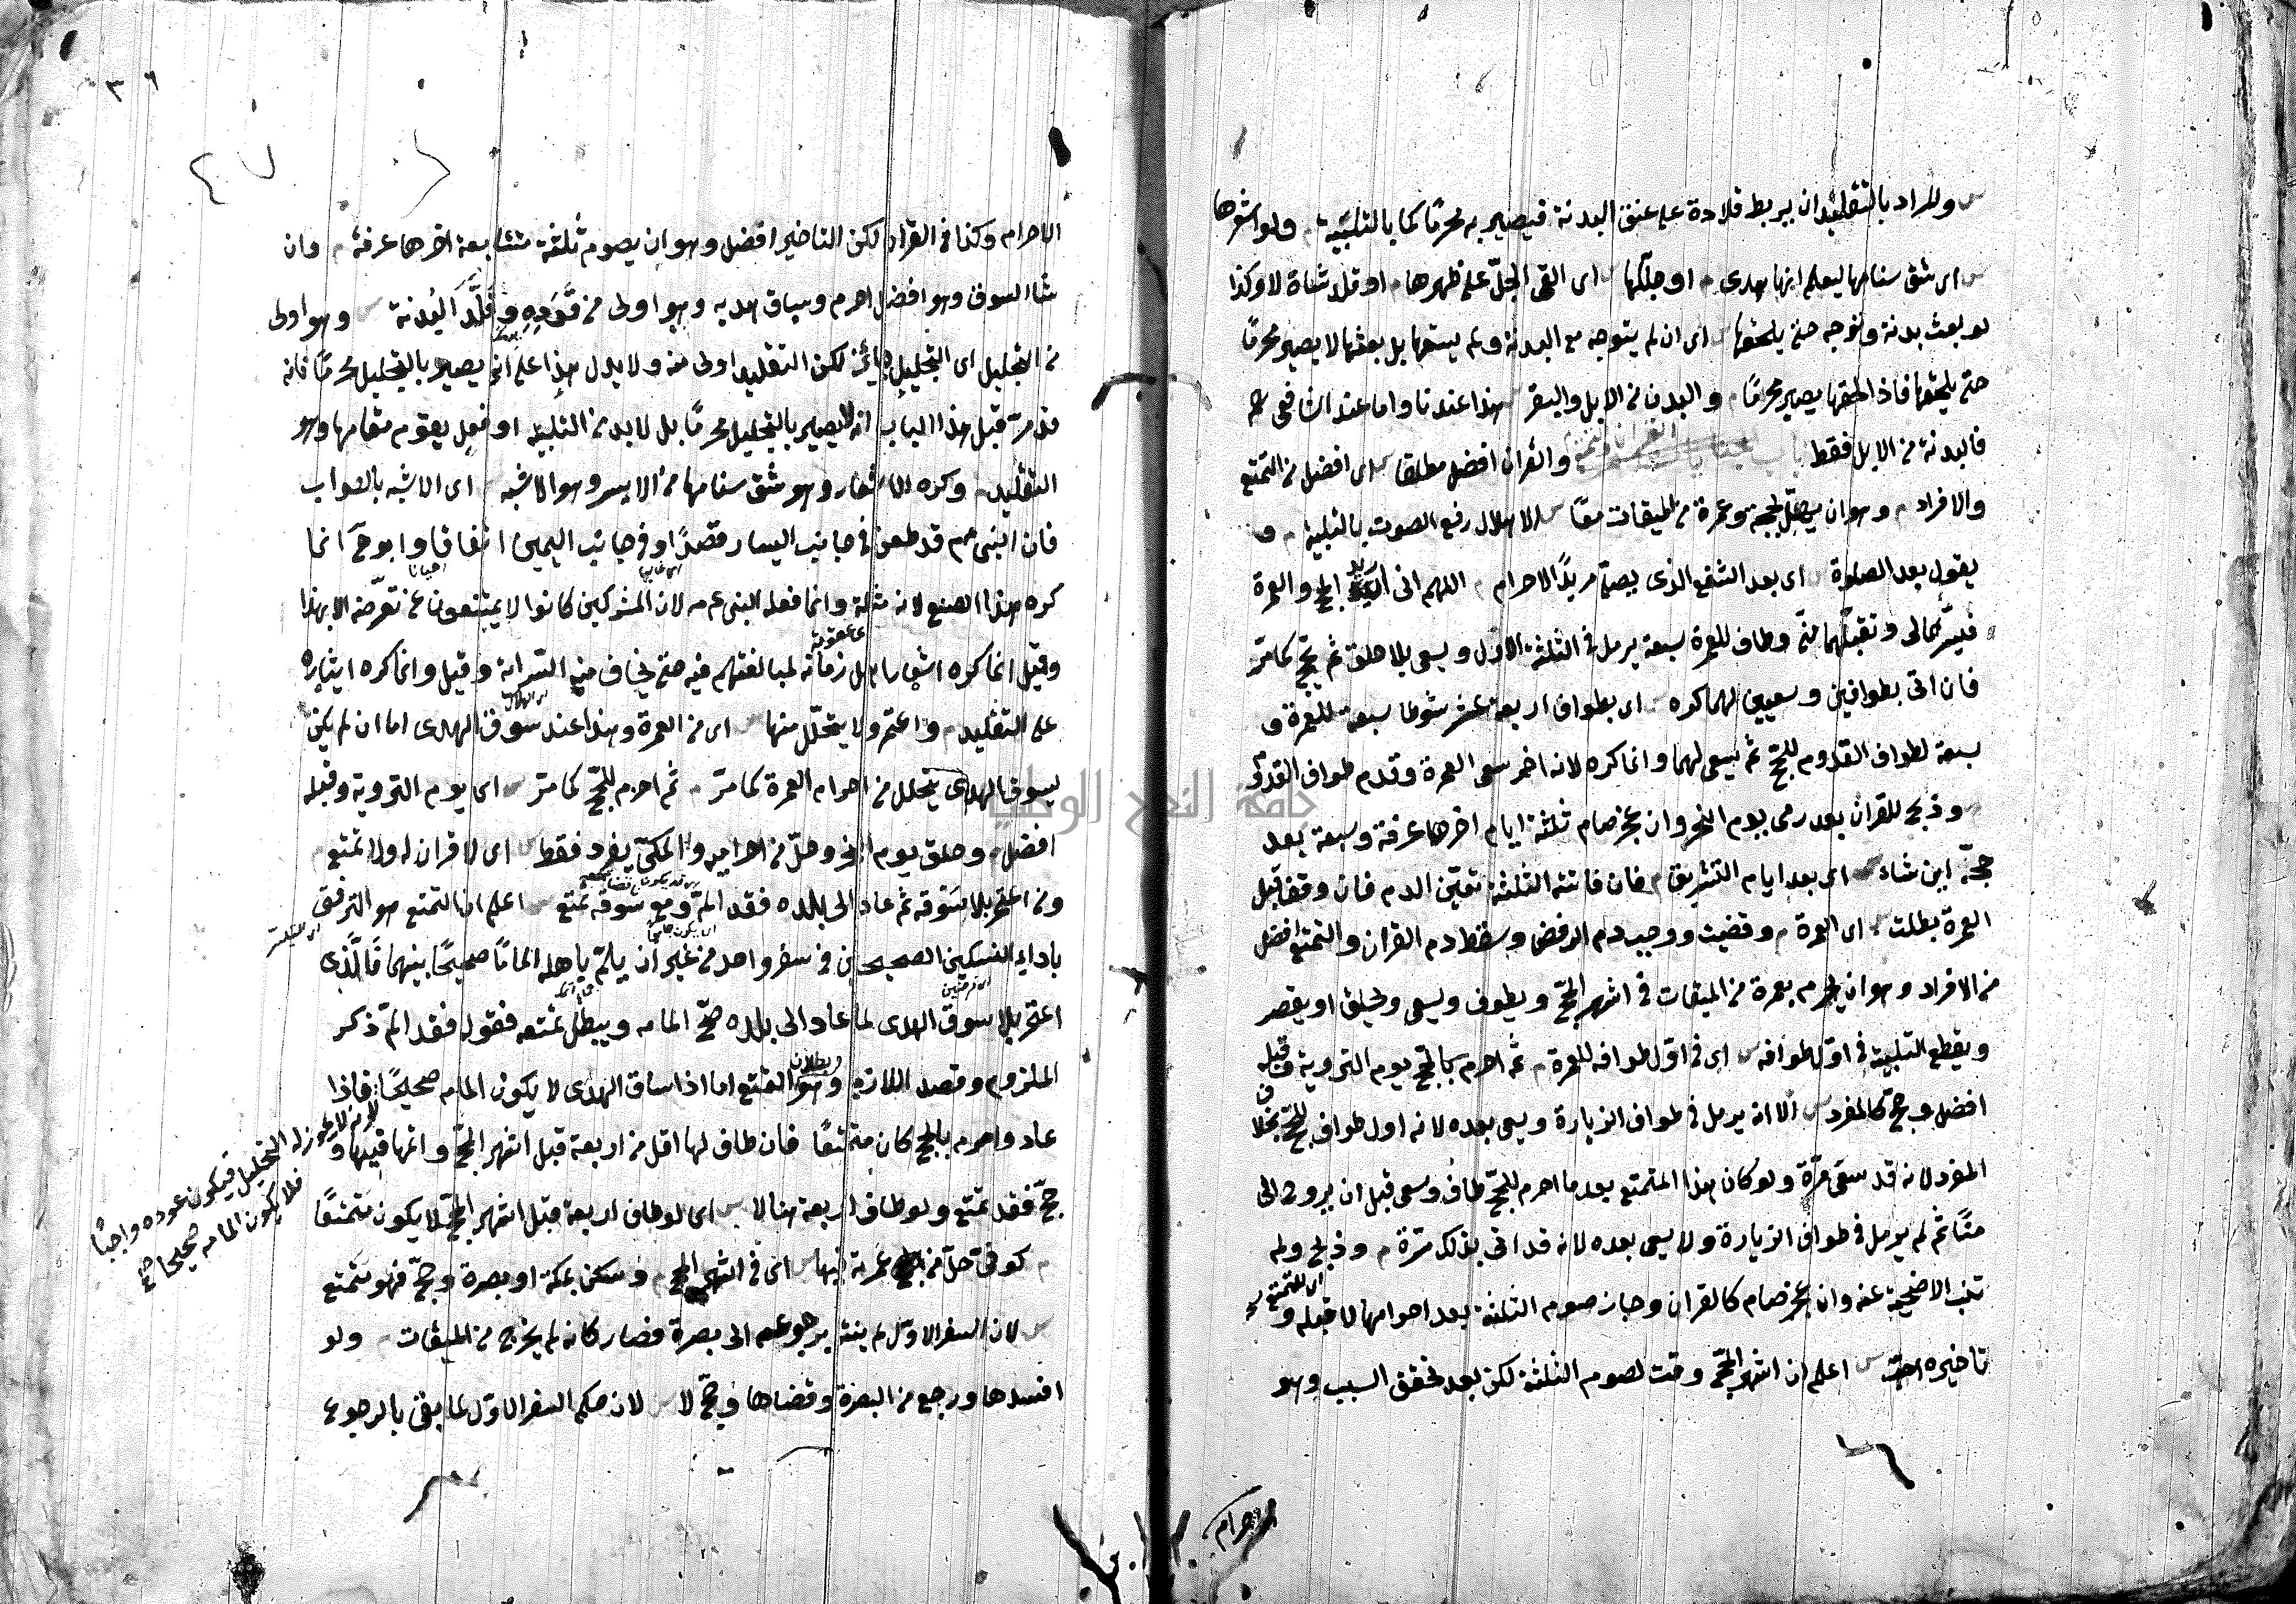 س والمراد بالتقليد ان يربط قلادة على عنق البدنة فيصير به محرمًا كما بالتلبية م ولو اشعرها
س اى شق سنامها ليعلم انها هدى م او جللها س اى القى الجلّ على ظهرها م او قلد شاة لا وكذا
لو بعث بدنة وتوجه حتى يلحقها س اى ان لم يتوجه مع البدنة ولم يسقها بل بعثها لا يصير محرمًا
حتى يلحقها فاذا لحقها يصير محرمًا م والبدن من الابل والبقر س هذا عندنا واما عند الشافعى رحمه
فالبدنة من الابل فقط باب القران والتمتع والقران افضل مطلقا س اى افضل من التمتع
والافراد م وهو ان يهل بحجة وعمرة من الميقات معًا س الاهلال رفع الصوت بالتلبية م و
يقول بعد الصلوة س اى بعد الشفع الذى يصلى مريدًا للاحرام م اللهم انى اريد الحج والعمرة
فيسّرهما لى وتقبلهما منّى وطاف للعمرة سبعة يرمل فى الثلثة الاول ويسعى بلا حلق ثم يحج كما مرّ
فان اتى بطوافين وسعيين لهما كره س اى يطوف اربعة عشر شوطا سبعة للعمرة و
سبعة لطواف القدوم للحجّ ثم يسعى لهما وانما كره لانه اخر سعى العمرة وقدم طواف القدوم
م وذبح للقران بعد رمى يوم النحر وان عجز صام ثلثة ايام اخرها عرفة وسبعة بعد
حجّه اين شاء س اى بعد ايام التشريق م فان فاتته الثلثة تعيّن الدم فان وقف قبل
العمرة بطلت س اى العمرة م وقضيت ووجب دم الرفض وسقط دم القران والتمتع افضل
من الافراد م وهو ان يحرم بعمرة من الميقات فى اشهر الحجّ ويطوف ويسعى ويحلق او يقصر
ويقطع التلبية فى اوّل طوافه س اى فى اوّل طوافه للعمرة م ثم احرم بالحجّ يوم التروية وقبله
افضل وحجّ كالمفرد س الا انه يرمل فى طواف الزيارة ويسعى بعده لانه اول طواف للحجّ بخلاف
المفرد لانه قد سعى مرّة ولو كان هذا المتمتع بعد ما احرم للحجّ طاف وسعى قبل ان يروح الى
منًا ثم لم يرمل فى طواف الزيارة ولا يسعى بعده لانه قد اتى بذلك مرّة م وذبح ولم
تنب الاضحية عنه وان عجز صام كالقران وجاز صوم الثلثة بعد احرامها لا قبله و
اى للمتمتع
تاخيره احبّ س اعلم ان اشهر الحجّ وقت لصوم الثلثة لكن بعد تحقق السبب وهو
الاحرام
٣٦
٤٧
الاحرام وكذا فى القران لكن التاخير افضل وهو ان يصوم ثلثة متتابعة اخرها عرفة م وان
شاء السوق وهو افضل احرم وساق هديه وهو اولى من قَوَدِهِ وقلّد البدنة س وهو اولى
من التجليل اى التجليل جائز لكن التقليد اولى منه ولا يدل هذا على انه يصير بالتجليل محرمًا فانه
قد مرّ قبل هذا الباب انه لا يصير بالتجليل محرمًا بل لا بد من التلبية او فعل يقوم مقامها وهو
التقليد م وكره الاشعار وهو شق سنامها من الايسر وهو الاشبه س اى الاشبه بالصواب
فان النبى عم قد طعن فى جانب اليسار قصدًا وفى جانب اليمين اتفاقا وابو ح انما
كره هذا الصنع لانه مثلة وانما فعله النبى عم لان المشركين كانوا لا يمتنعون عن تعرّضه الا بهذا
وقيل انما كره اشعار اهل زمانه لمبالغتهم فيه حتى يخاف منه السراية وقيل وانما كره ايثاره
على التقليد م واعتمر ولا يتحلّل منها س اى من العمرة وهذا عند سوق الهدى اما ان لم يكن
يسوق الهدى يتحلل من احرام العمرة كما مرّ م ثم احرم للحجّ كما مرّ س اى يوم التروية وقبله
افضل م وحلق يوم النحر وحلّ من احراميه والمكىّ يفرد فقط س اى لا قران له ولا تمتع م
ومن اعتمر بلا سوقه ثم عاد الى بلده فقد المّ ومع سوقه تمتع س اعلم ان التمتع هو الترفق
باداء النسكين الصحيحين فى سفر واحد من غير ان يلمّ باهله المامًا صحيحًا بينهما فالّذى
اعتمر بلا سوق الهدى لما عاد الى بلده صحّ المامه ويبطل تمتعه فقوله فقد المّ ذكر
الملزوم وقصد اللازم وهو بطلان التمتع اما اذا ساق الهدى لا يكون المامه صحيحًا فاذا
لانه لا يجوز له التحليل فيكون عوده واجبًا
فلا يكون المامه صحيحا صح
عاد واحرم بالحج كان متمتعًا فان طاف لها اقل من اربعة قبل اشهر الحجّ واتمها فيها و
حجّ فقد تمتع ولو طاف اربعة هنا لا س اى لو طاف اربعة قبل اشهر الحجّ لا يكون متمتعًا
م كوفى حلّ من عمرته فيها س اى فى اشهر الحج م وسكن بمكة او بصرة وحجّ فهو متمتع
س لان السفر الاوّل لم ينته برجوعه الى بصرة فصار كانه لم يخرج من الميقات م ولو
افسدها ورجع من البصرة وقضاها وحجّ لا س لان حكم السفر الاوّل لما بقى بالرجوع
جامعة النجاح الوطنية